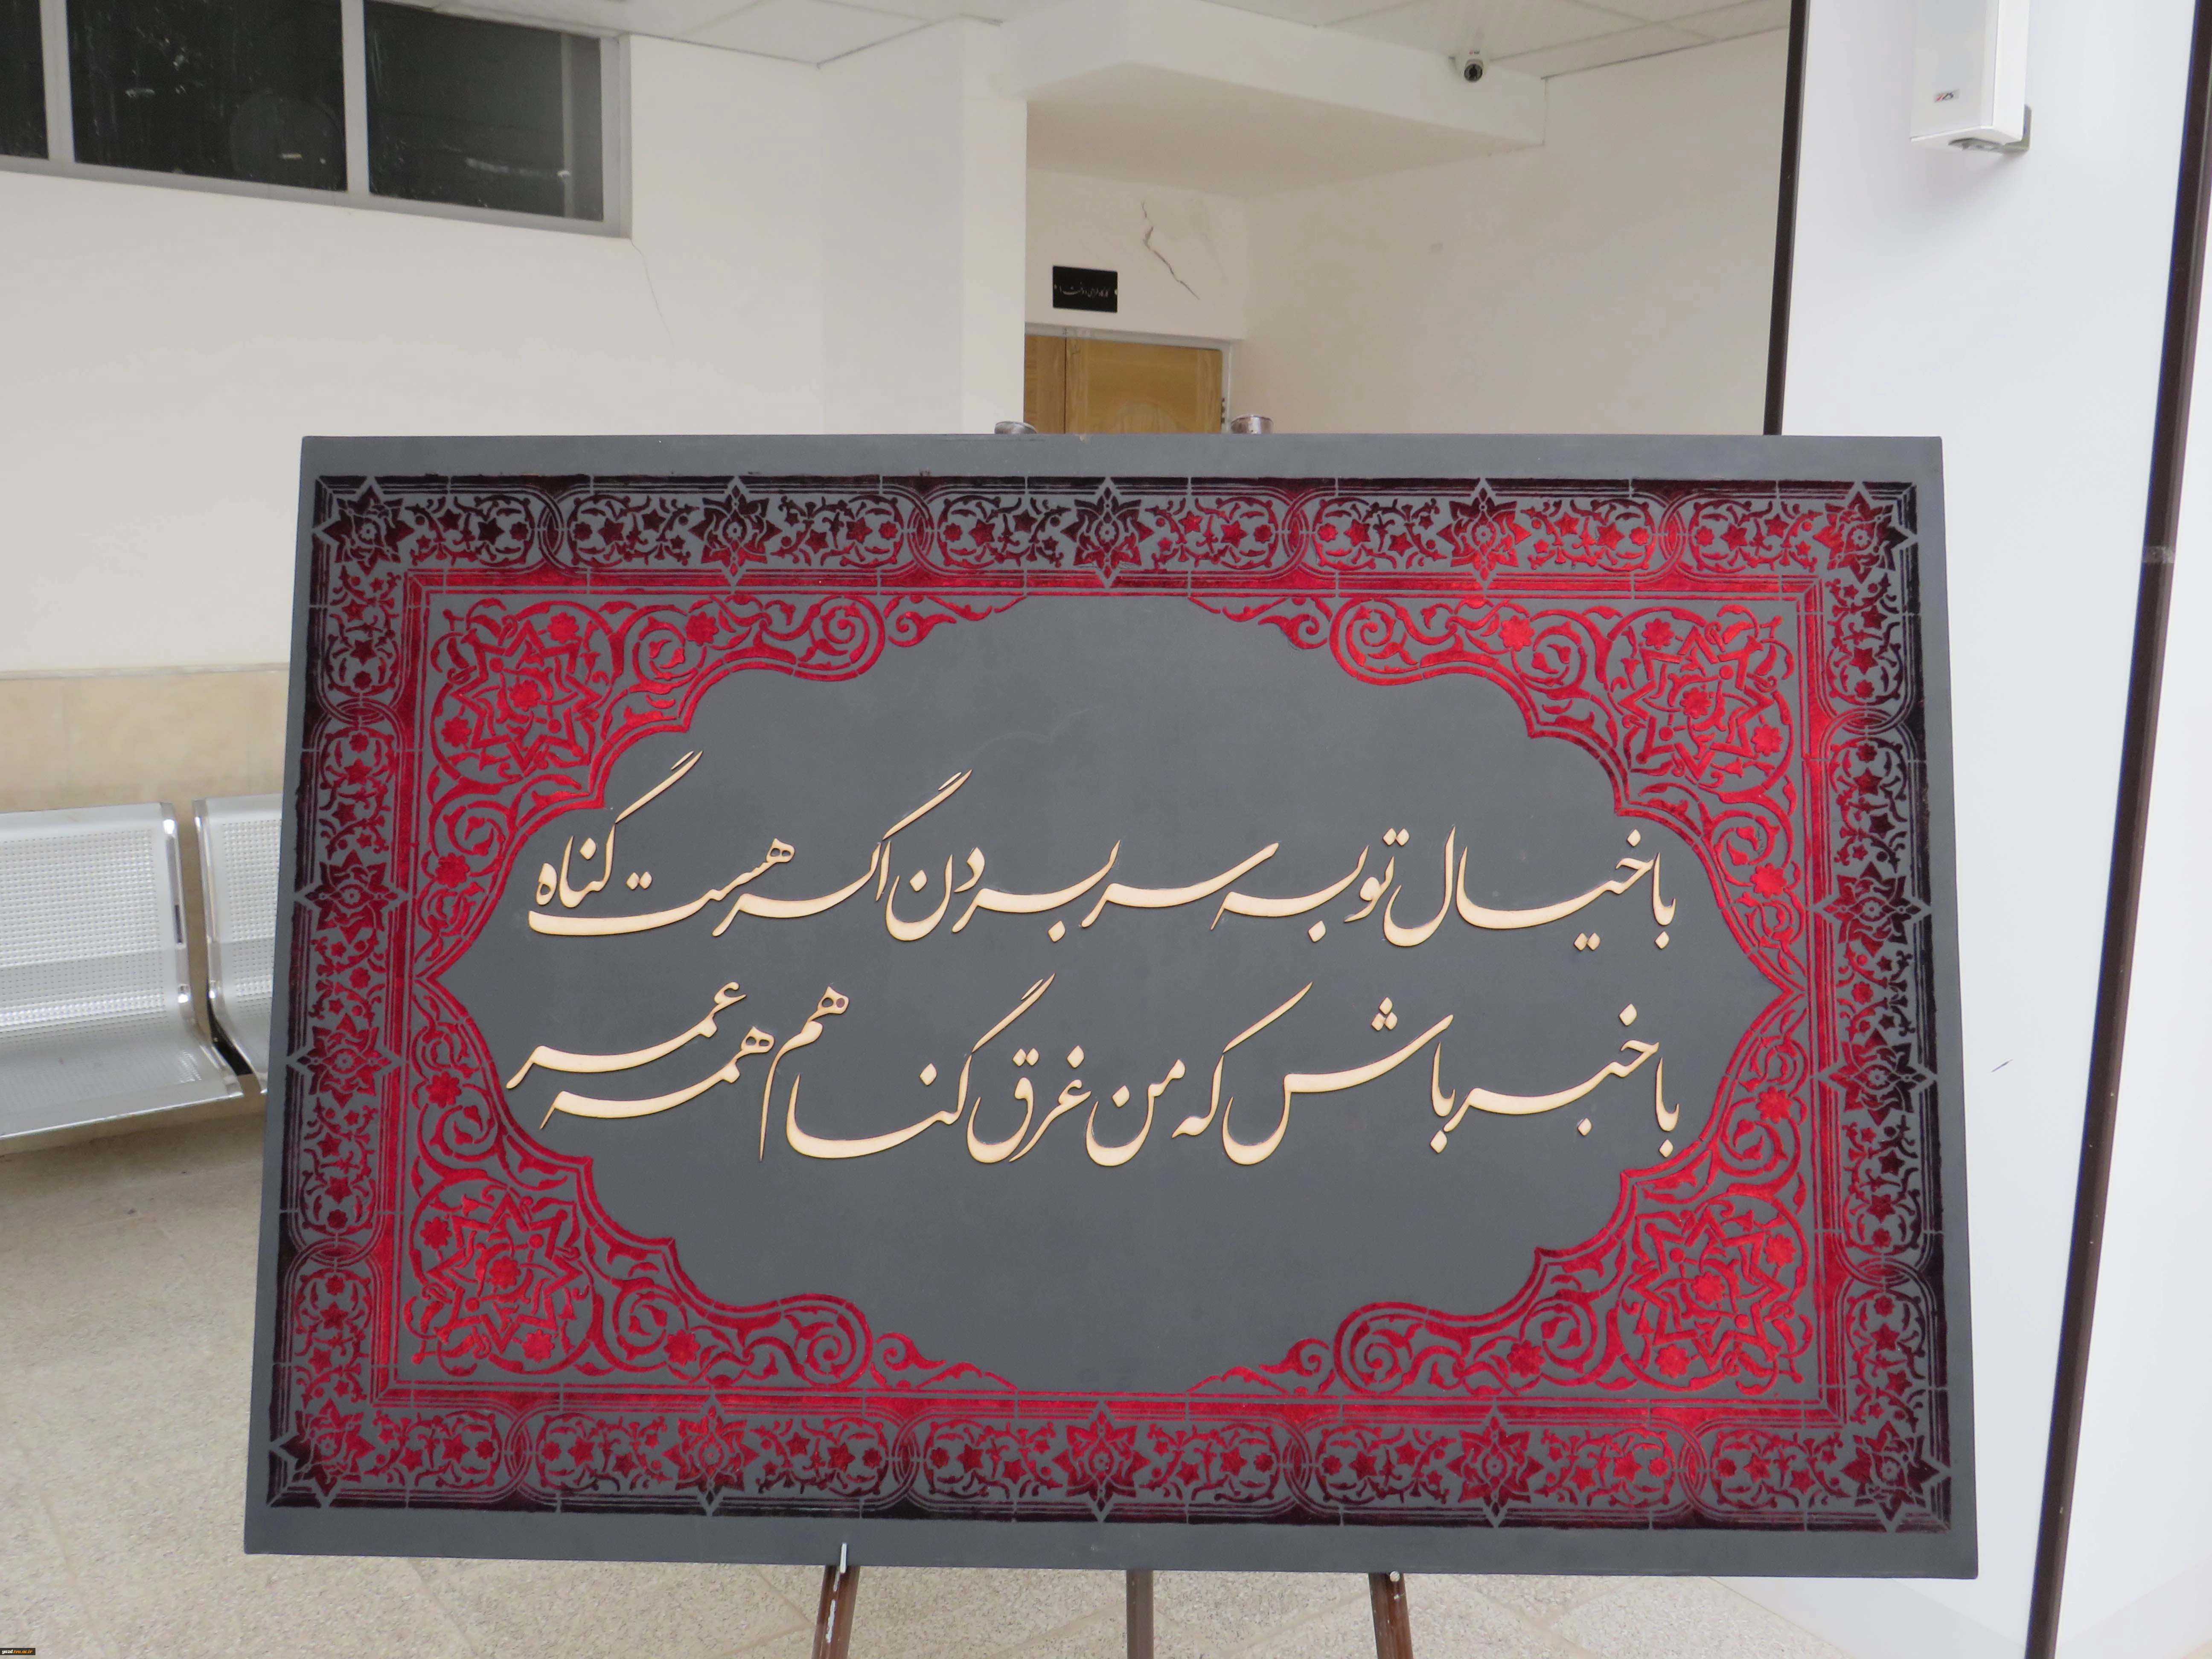 با خیال تو به سر بردن اگر هست گناه
با خبر باش که من غرق گناهم همه عمر